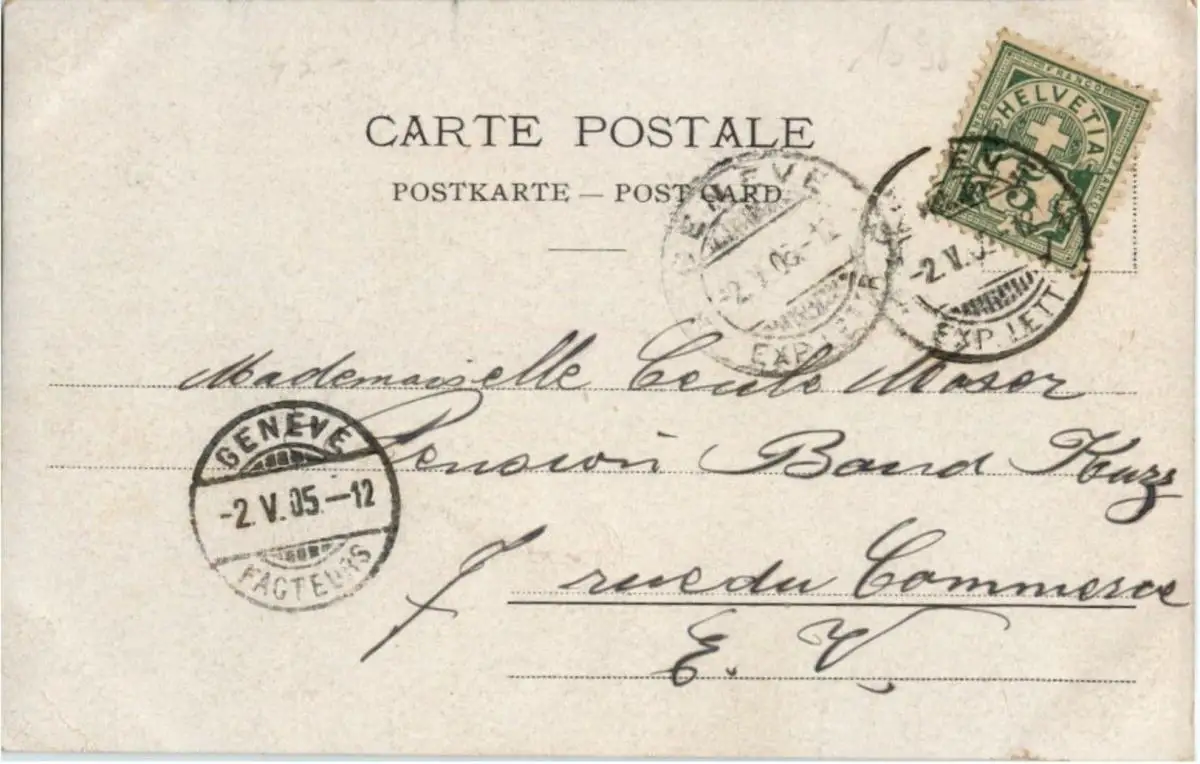 CARTE POSTALE
POSTKARTE — POST CARD
FRANCO
HELVETIA
FRANCO
5
GENEVE
-2.V.05.-12
EXP. LETTR
-2.V.05
EXP. LETT
Mademoiselle Cecile Moser
Pension Bond
7 rue du Commerce
E. V.
GENEVE
-2.V.05.-12
FACTEURS